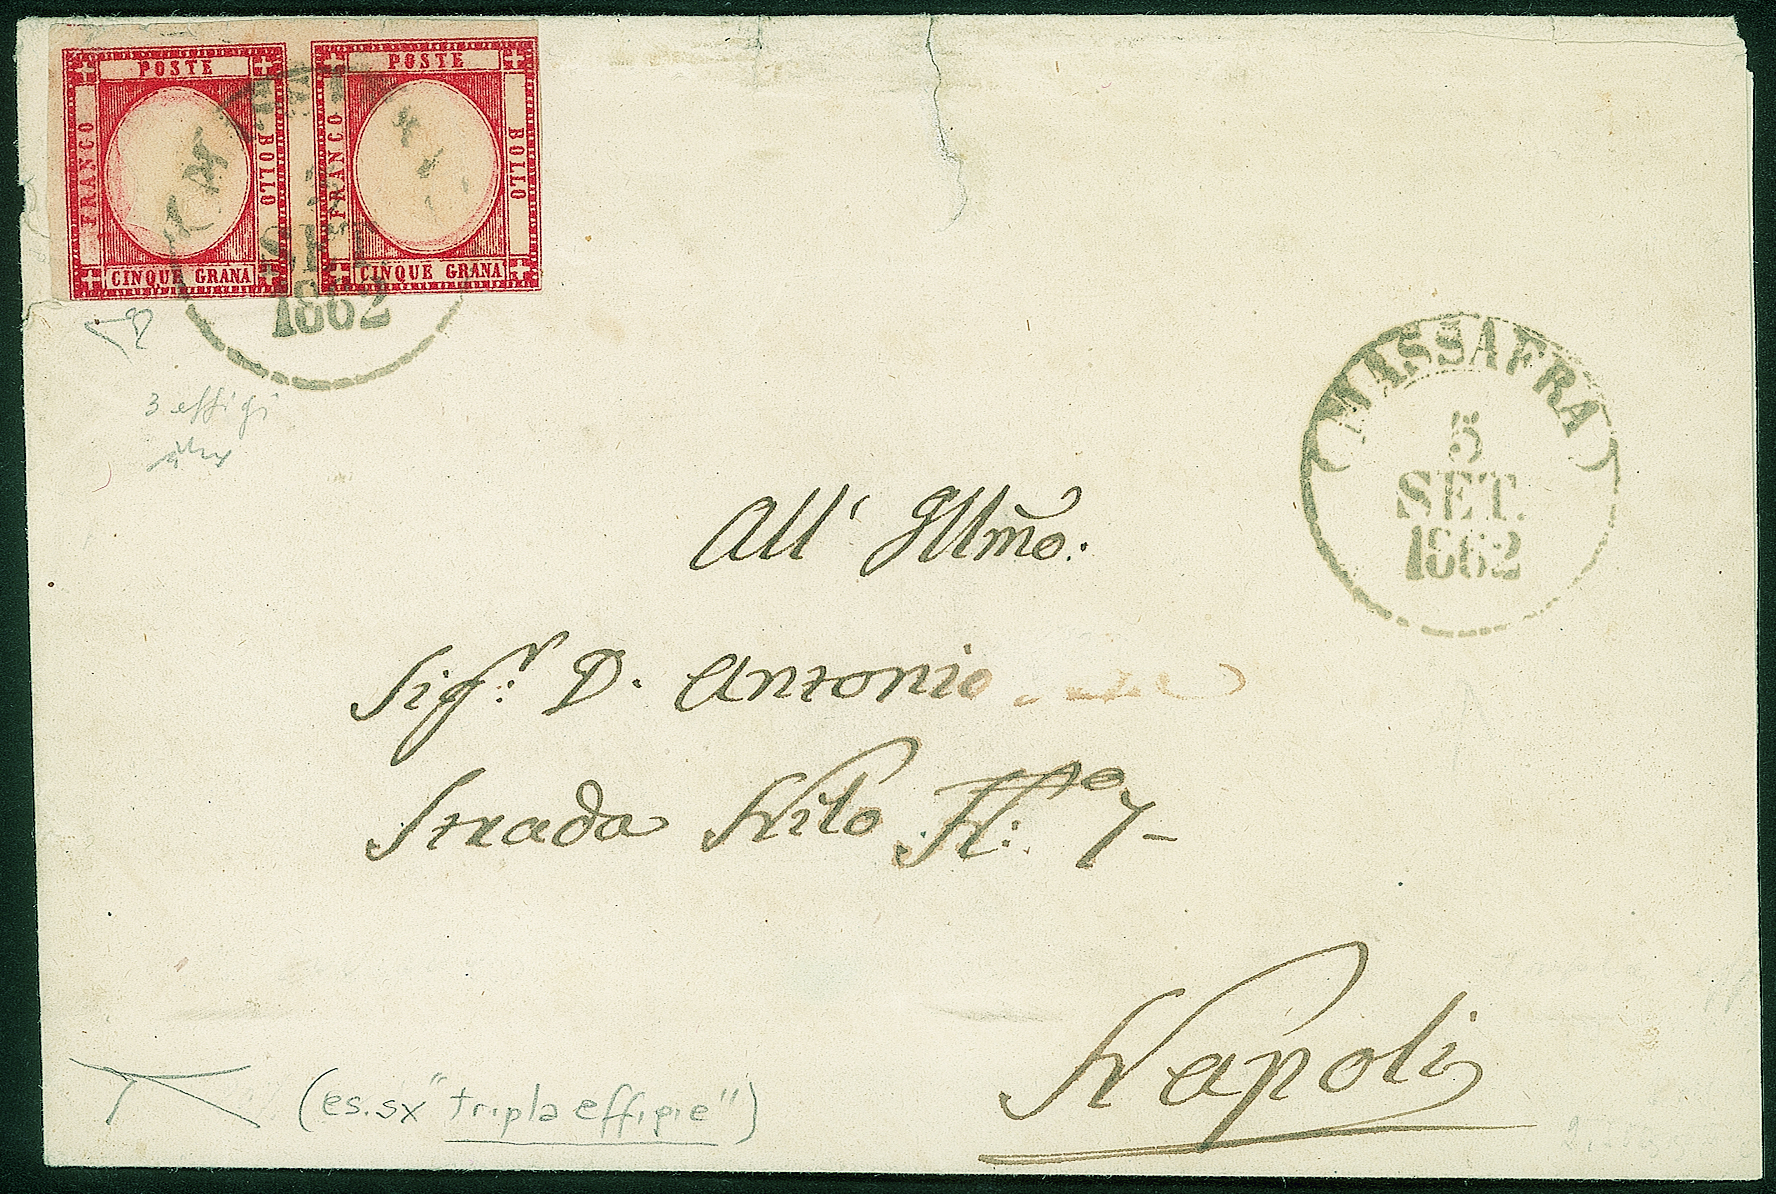 POSTE
FRANCO
BOLLO
CINQUE GRANA
POSTE
FRANCO
BOLLO
CINQUE GRANA
SET.
1862
3 effigi
(MASSAFRA)
5
SET.
1862
All' Illm̃o.
Sigr: D. Antonio
Strada Nilo No: 7-
Napoli
(es. sx "tripla effigie")